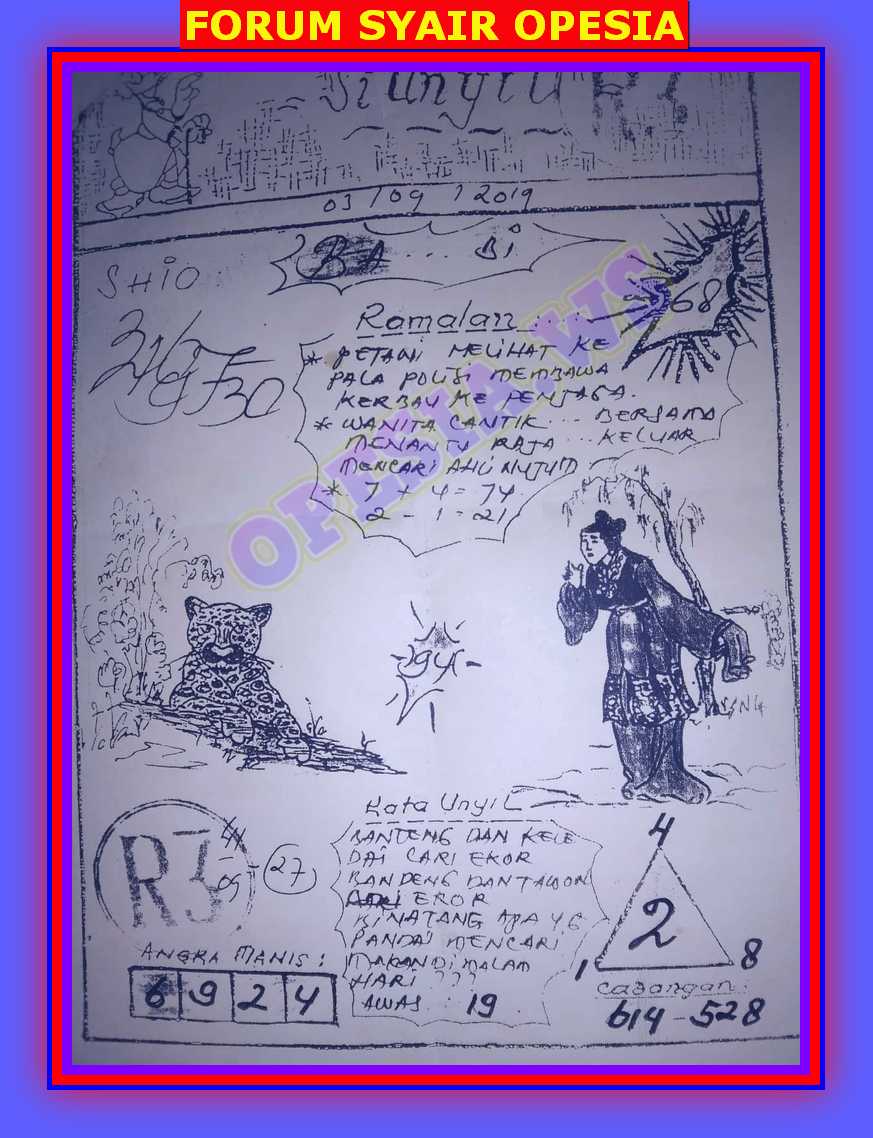 FORUM SYAIR OPESIA
Si Unyil R3
03/09/2019
SHIO
BA ... Bi
68
Ramalan ....
* PETANI MELIHAT KE
PALA POLISI MEMBAWA
KERBAU KE PENJAGA.
* WANITA CANTIK ... BERSAMA
MENANTU RAJA ... KELUAR
MENCARI AHLI NUJUM
* 7 + 4 = 74
2 - 1 = 21
OPESIA.WS
94
Kata Unyil
BANTENG DAN KELE
DAI CARI EKOR
BANDENG DAN TAWON
CARI EKOR
BINATANG APA YG
PANDAI MENCARI
MAKAN DI MALAM
HARI ???
AWAS : 19
R3
27
ANGKA MANIS :
6 9 2 4
4
2
1 8
Cadangan :
614 - 528